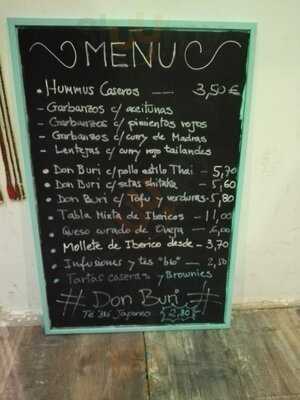 MENU
• Hummus Caseros — 3,50€
- Garbanzos c/ aceitunas
- Garbanzos c/ pimientos rojos
- Garbanzos c/ curry de Madras
- Lentejas c/ curry rojo tailandes
• Don Buri c/ pollo estilo Thai - 5,70
• Don Buri c/ setas shitake - 5,60
• Don Buri c/ Tofu y verduras - 5,80
• Tabla Mixta de Ibericos - 11,00
• Queso curado de Oveja - 6,00
• Mollete de Iberico desde - 3,70
• Infusiones y tés "bio" — 2,50
• Tartas caseras y Brownies
# Don Buri #
Japonés {2,80}